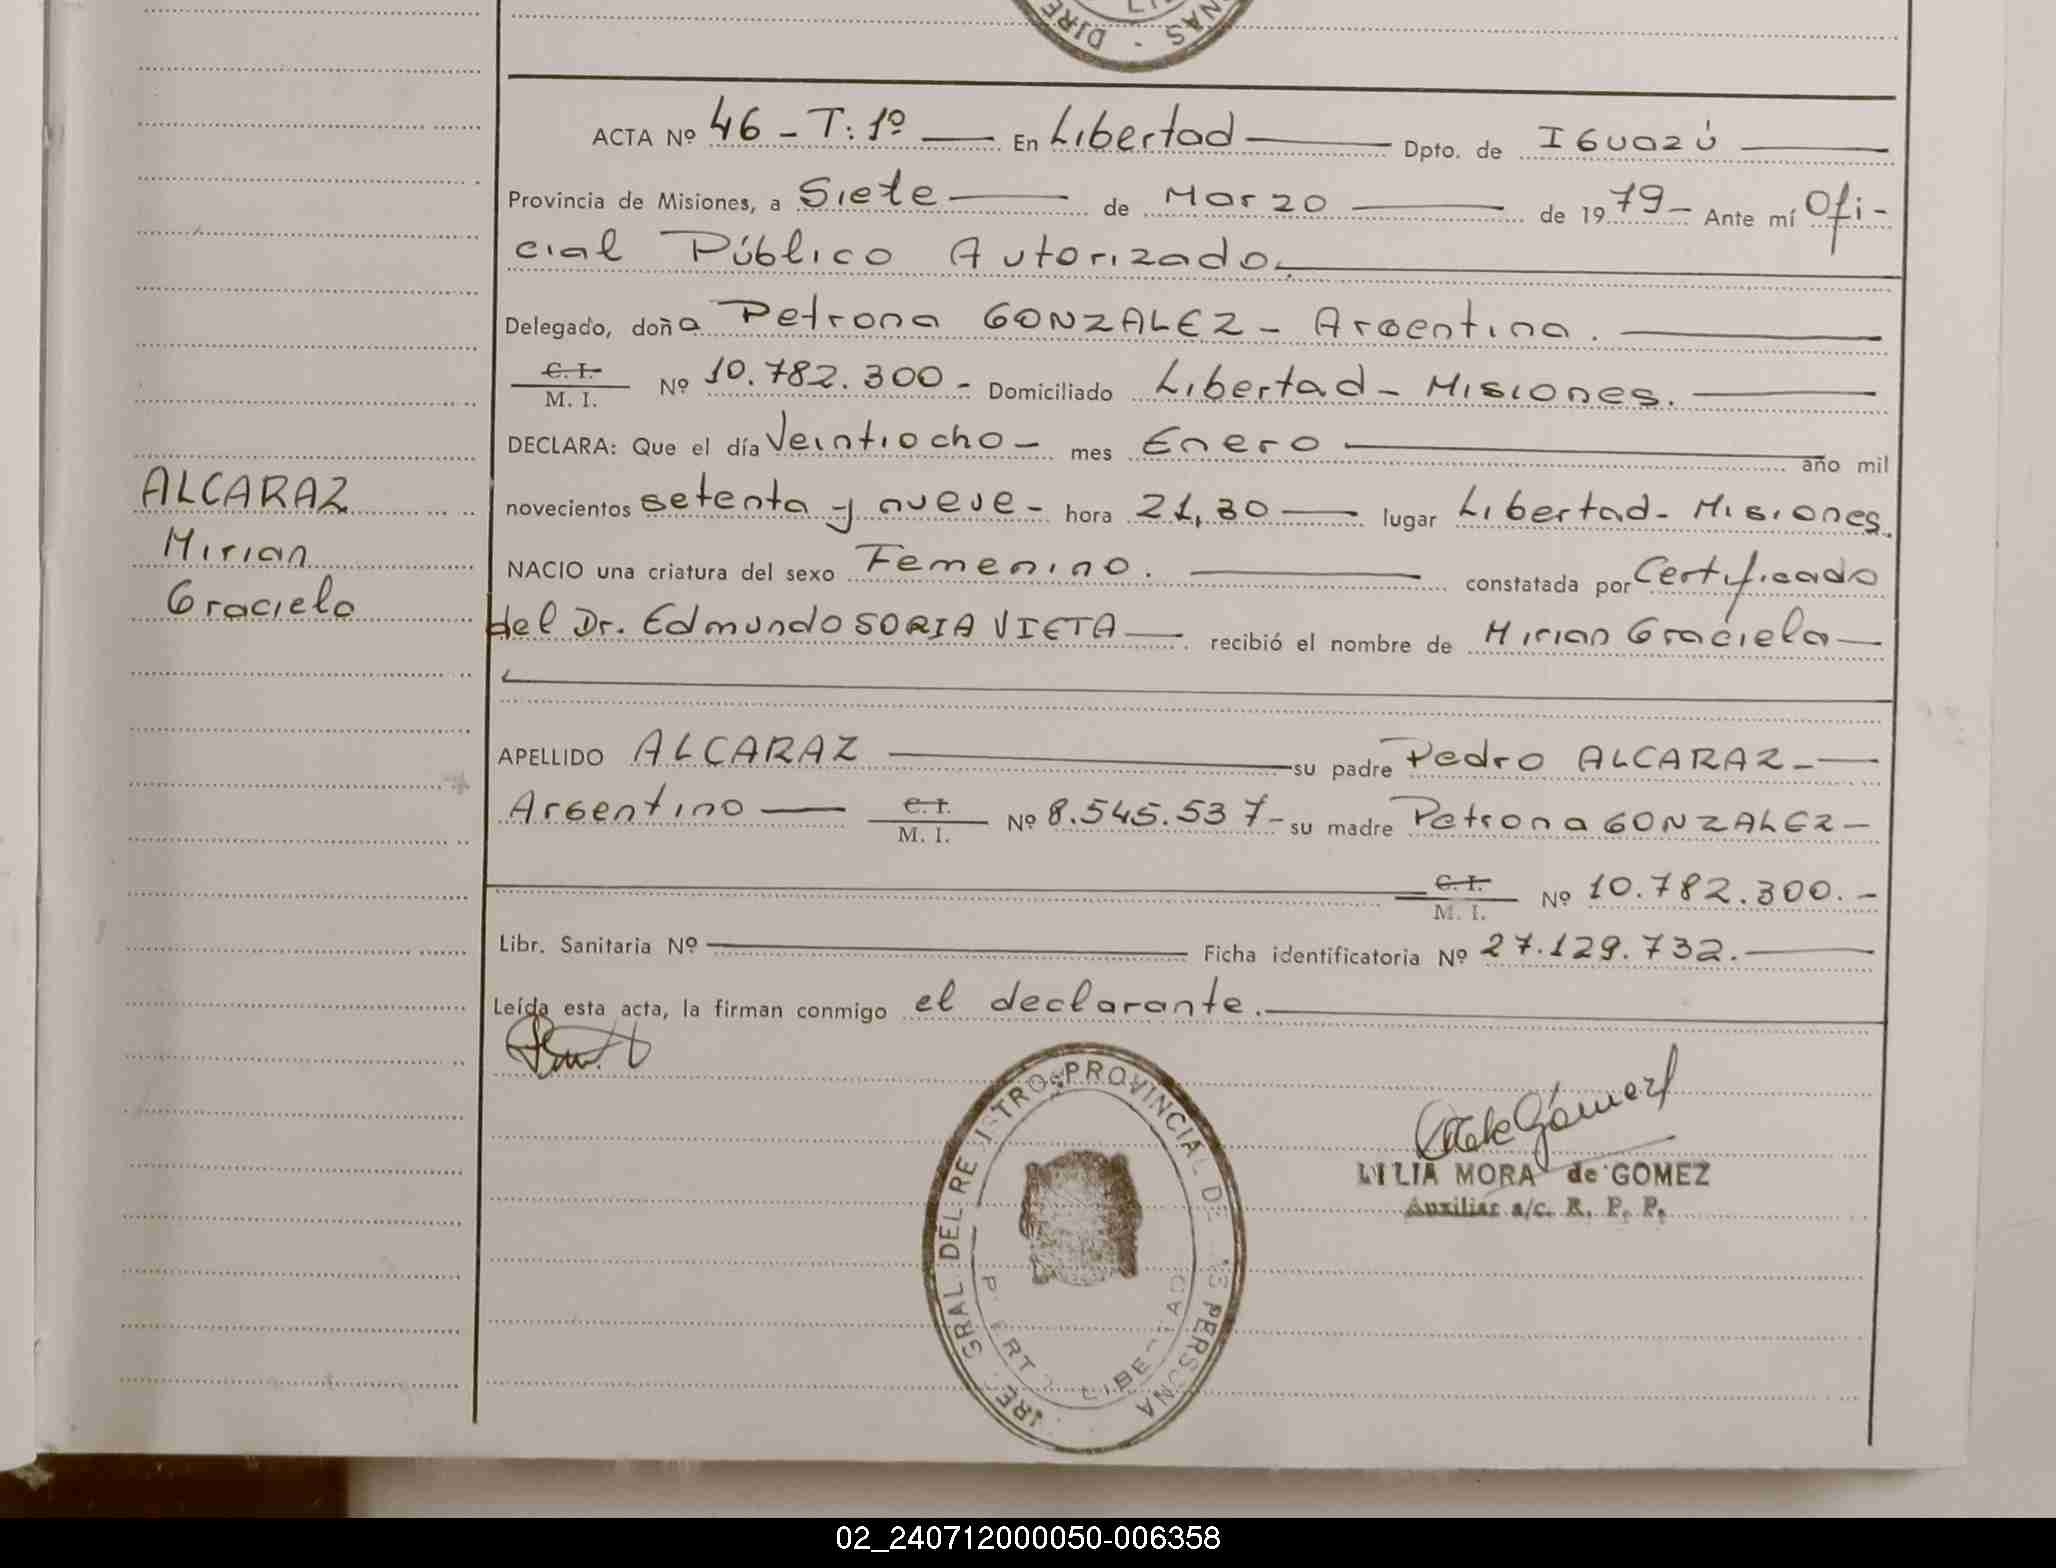 LI
DIRE - NAS
ACTA Nº 46 - T: 1º En Libertad Dpto. de IGUAZÚ
Provincia de Misiones, a Siete de Marzo de 1979- Ante mí Ofi-
cial Público Autorizado.
Delegado, doña Petrona GONZALEZ - Argentina.
C. I.
M. I. Nº 10.782.300 - Domiciliado Libertad - Misiones.
DECLARA: Que el día Veintiocho - mes Enero año mil
novecientos setenta y nueve - hora 21,30 lugar Libertad - Misiones.
NACIO una criatura del sexo Femenino. constatada por Certificado
del Dr. Edmundo SORIA VIETA recibió el nombre de Mirian Graciela
ALCARAZ
Mirian
Graciela
APELLIDO ALCARAZ su padre Pedro ALCARAZ -
Argentino C. I.
M. I. Nº 8.545.537- su madre Petrona GONZALEZ -
C. I.
M. I. Nº 10.782.300. -
Libr. Sanitaria Nº Ficha identificatoria Nº 27.129.732.
Leída esta acta, la firman conmigo el declarante.
IRE GRAL DEL RE ISTRO PROVINCIAL DE AS PERSONA
P ERT LIBE TAD
LILIA MORA de GOMEZ
Auxiliar a/c. R. P. P.
02_240712000050-006358